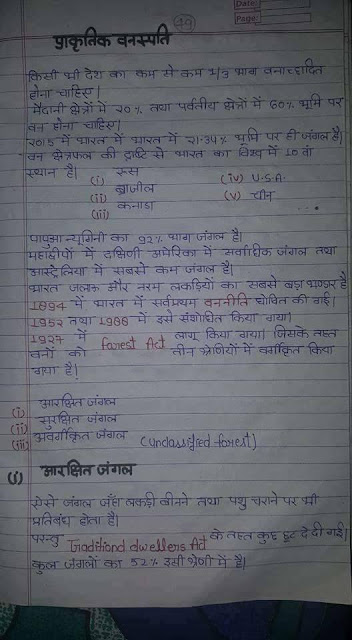 Date:
Page:
49
प्राकृतिक वनस्पति
किसी भी देश का कम से कम 1/3 भाग वनाच्छादित
होना चाहिए।
मैदानी क्षेत्रों में 20% तथा पर्वतीय क्षेत्रों में 60% भूमि पर
वन होना चाहिए।
2015 में भारत में भारत में 21.34% भूमि पर ही जंगल है।
वन क्षेत्रफल की दृष्टि से भारत का विश्व में 10 वां
स्थान है।
(i) रूस (iv) U.S.A.
(ii) ब्राजील (v) चीन
(iii) कनाडा ...
पापुआ न्यूगिनी का 92% भाग जंगल है।
महाद्वीपों में दक्षिणी अमेरिका में सर्वाधिक जंगल तथा
आस्ट्रेलिया में सबसे कम जंगल है।
भारत और नरम लकड़ियों का सबसे बड़ा भण्डार है
1894 में भारत में सर्वप्रथम वननीति घोषित की गई।
1952 तथा 1988 में इसे संशोधित किया गया।
1927 में Forest Act लागू किया गया। जिसके तहत
वनों को तीन श्रेणियों में वर्गीकृत किया
गया है।
(i) आरक्षित जंगल
(ii) सुरक्षित जंगल
(iii) अवर्गीकृत जंगल (unclassified forest)
(i) आरक्षित जंगल
ऐसे जंगल जहाँ लकड़ी बीनने तथा पशु चराने पर भी
प्रतिबंध होता है।
परन्तु Traditional dwellers Act के तहत कुछ छूट दे दी गई।
कुल जंगलों का 52% इसी श्रेणी में है।